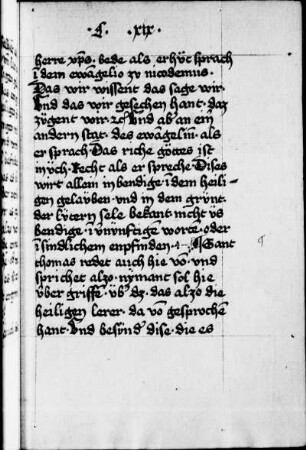 · C · xix ·
herre xp̄s · bede als er hüt sprach
ī dem ewāgelio zu nicodemus ·
Das wir wissent das sage wir ·
Und das wir gesechen hant · daz
zügent wir · ⁊c̄ Und ab an ein
andern stat · des ewāgelīm · als
er sprach Das riche gottes ist
in üch · Recht als er spreche · Dises
wirt allein inbendige ī dem heili-
gen gelauben · und in dem grünt ·
der lutern sele bekant nicht us
bendige · ī ününftigen worte · oder
ī sindlichem enpfinden · Sant
thomas redet auch hie vō · und
sprichet also · nymant sol hie
über griffē · üb dz · das also die
heiligen lerer · da vō gesprochē
hant · Und besünd dise · die es